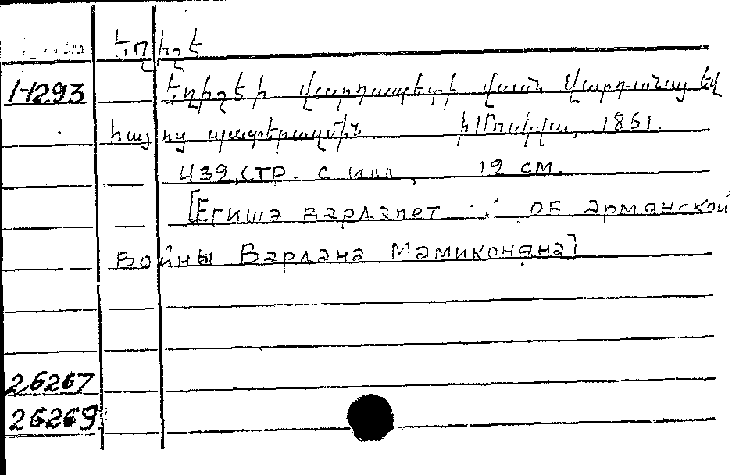 Եղիշե
1-1293 Եղիշեի վարդապետի վասն Վարդանայ եվ
հայոց պատերազմին Ի Մոսկվա, 1861.
439 стр. с илл, 19 см.
[Егишэ вардапет об армянской
войны Вардана Мамиконяна]
26267
26269